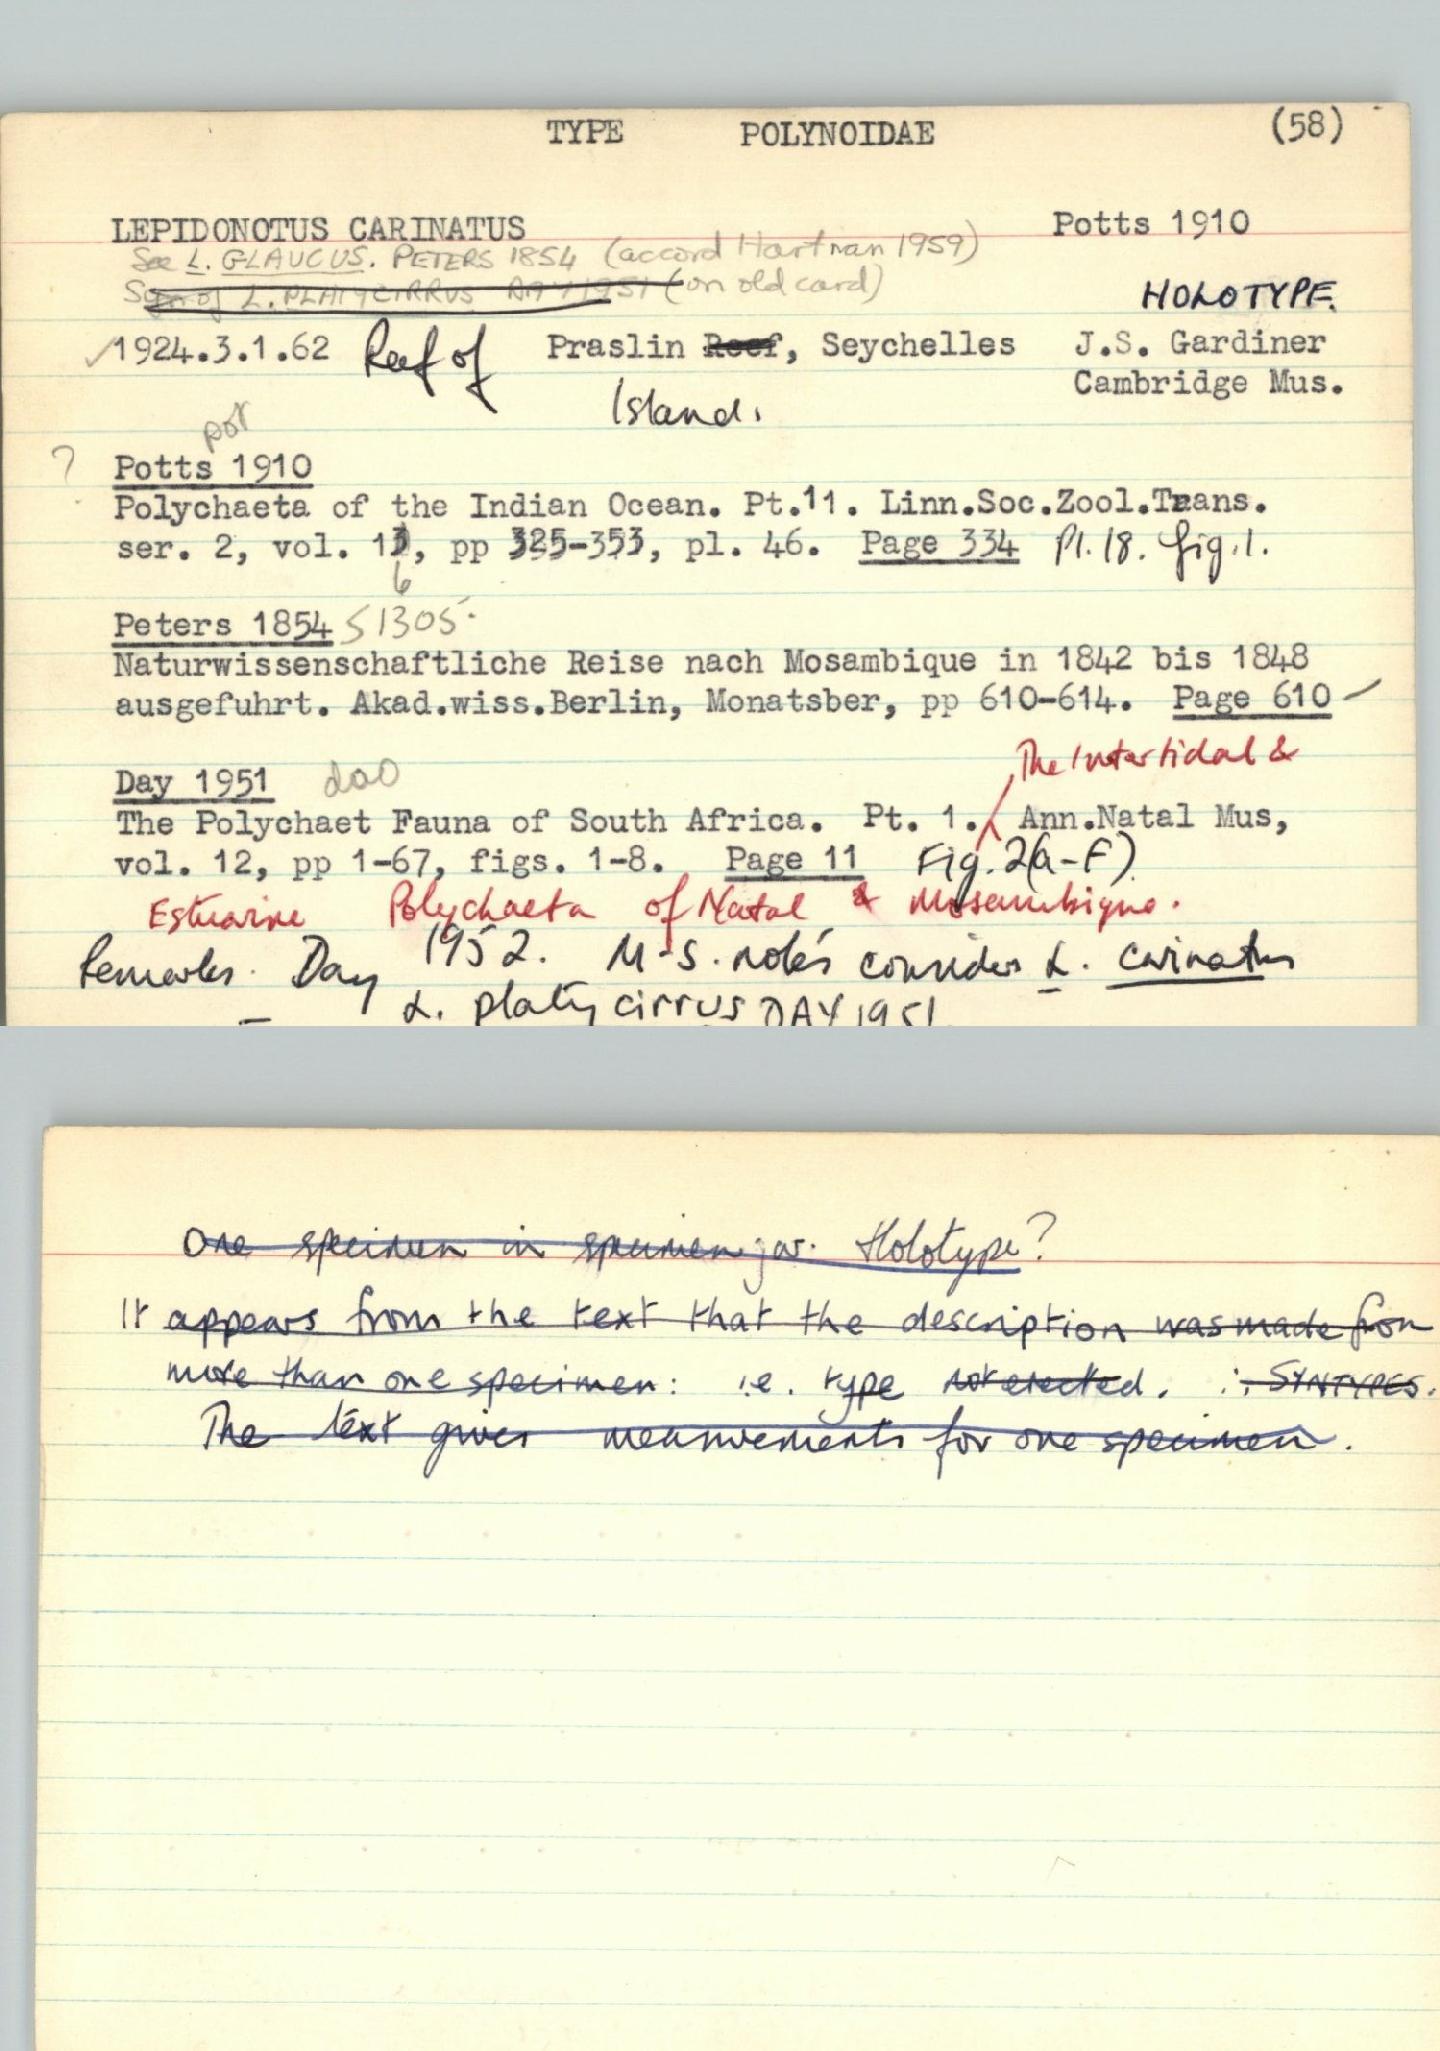 TYPE POLYNOIDAE (58)
LEPIDONOTUS CARINATUS Potts 1910
See L. GLAUCUS. PETERS 1854 (accord Hartman 1959)
Syn of L. PLATYCIRRUS DAY 1951 (on old card)
HOLOTYPE.
✓1924.3.1.62 Reef of Praslin Reef, Seychelles J.S. Gardiner
Island. Cambridge Mus.
pot
? Potts 1910
Polychaeta of the Indian Ocean. Pt.11. Linn.Soc.Zool.Trans.
ser. 2, vol. 13, pp 325-353, pl. 46. Page 334 Pl.18. fig.1.
6
Peters 1854 S1305.
Naturwissenschaftliche Reise nach Mosambique in 1842 bis 1848
ausgefuhrt. Akad.wiss.Berlin, Monatsber, pp 610-614. Page 610 ✓
The Intertidal &
Day 1951 dao
The Polychaet Fauna of South Africa. Pt. 1. Ann.Natal Mus,
vol. 12, pp 1-67, figs. 1-8. Page 11 Fig.2(a-F)
Estuarine Polychaeta of Natal & Mosambique.
Remarks. Day 1952. M-S. notes consider L. carinatus
L. platycirrus DAY 1951
One specimen in specimen jar. Holotype?
It appears from the text that the description was made from
more than one specimen: i.e. type not erected. ∴ SYNTYPES.
The text gives measurements for one specimen.